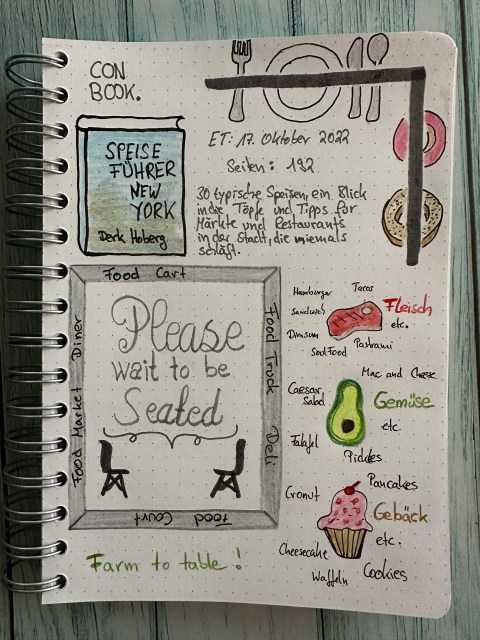 CON
BOOK.
SPEISE
FÜHRER
NEW
YORK
Derk Hoberg
ET: 17. Oktober 2022
Seiten: 192
30 typische Speisen, ein Blick
in die Töpfe und Tipps für
Märkte und Restaurants
in der Stadt, die niemals
schläft.
Food Cart
Food Market Diner
Food Truck Deli
Food Court
Please
wait to be
Seated
Hamburger
Tacos
Sandwich
Fleisch
etc.
Dimsum
Pastrami
Soulfood
Mac and Cheese
Caesar
Salad
Gemüse
etc.
Falafel
Pickles
Pancakes
Cronut
Gebäck
etc.
Cheesecake
Waffeln
Cookies
Farm to table!